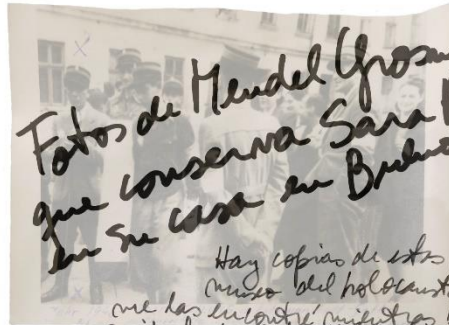 Fotos de Mendel Grosm
que conserva Sara
en su casa en
Hay copias de estas
museo del holocaust
me las encontré mientras